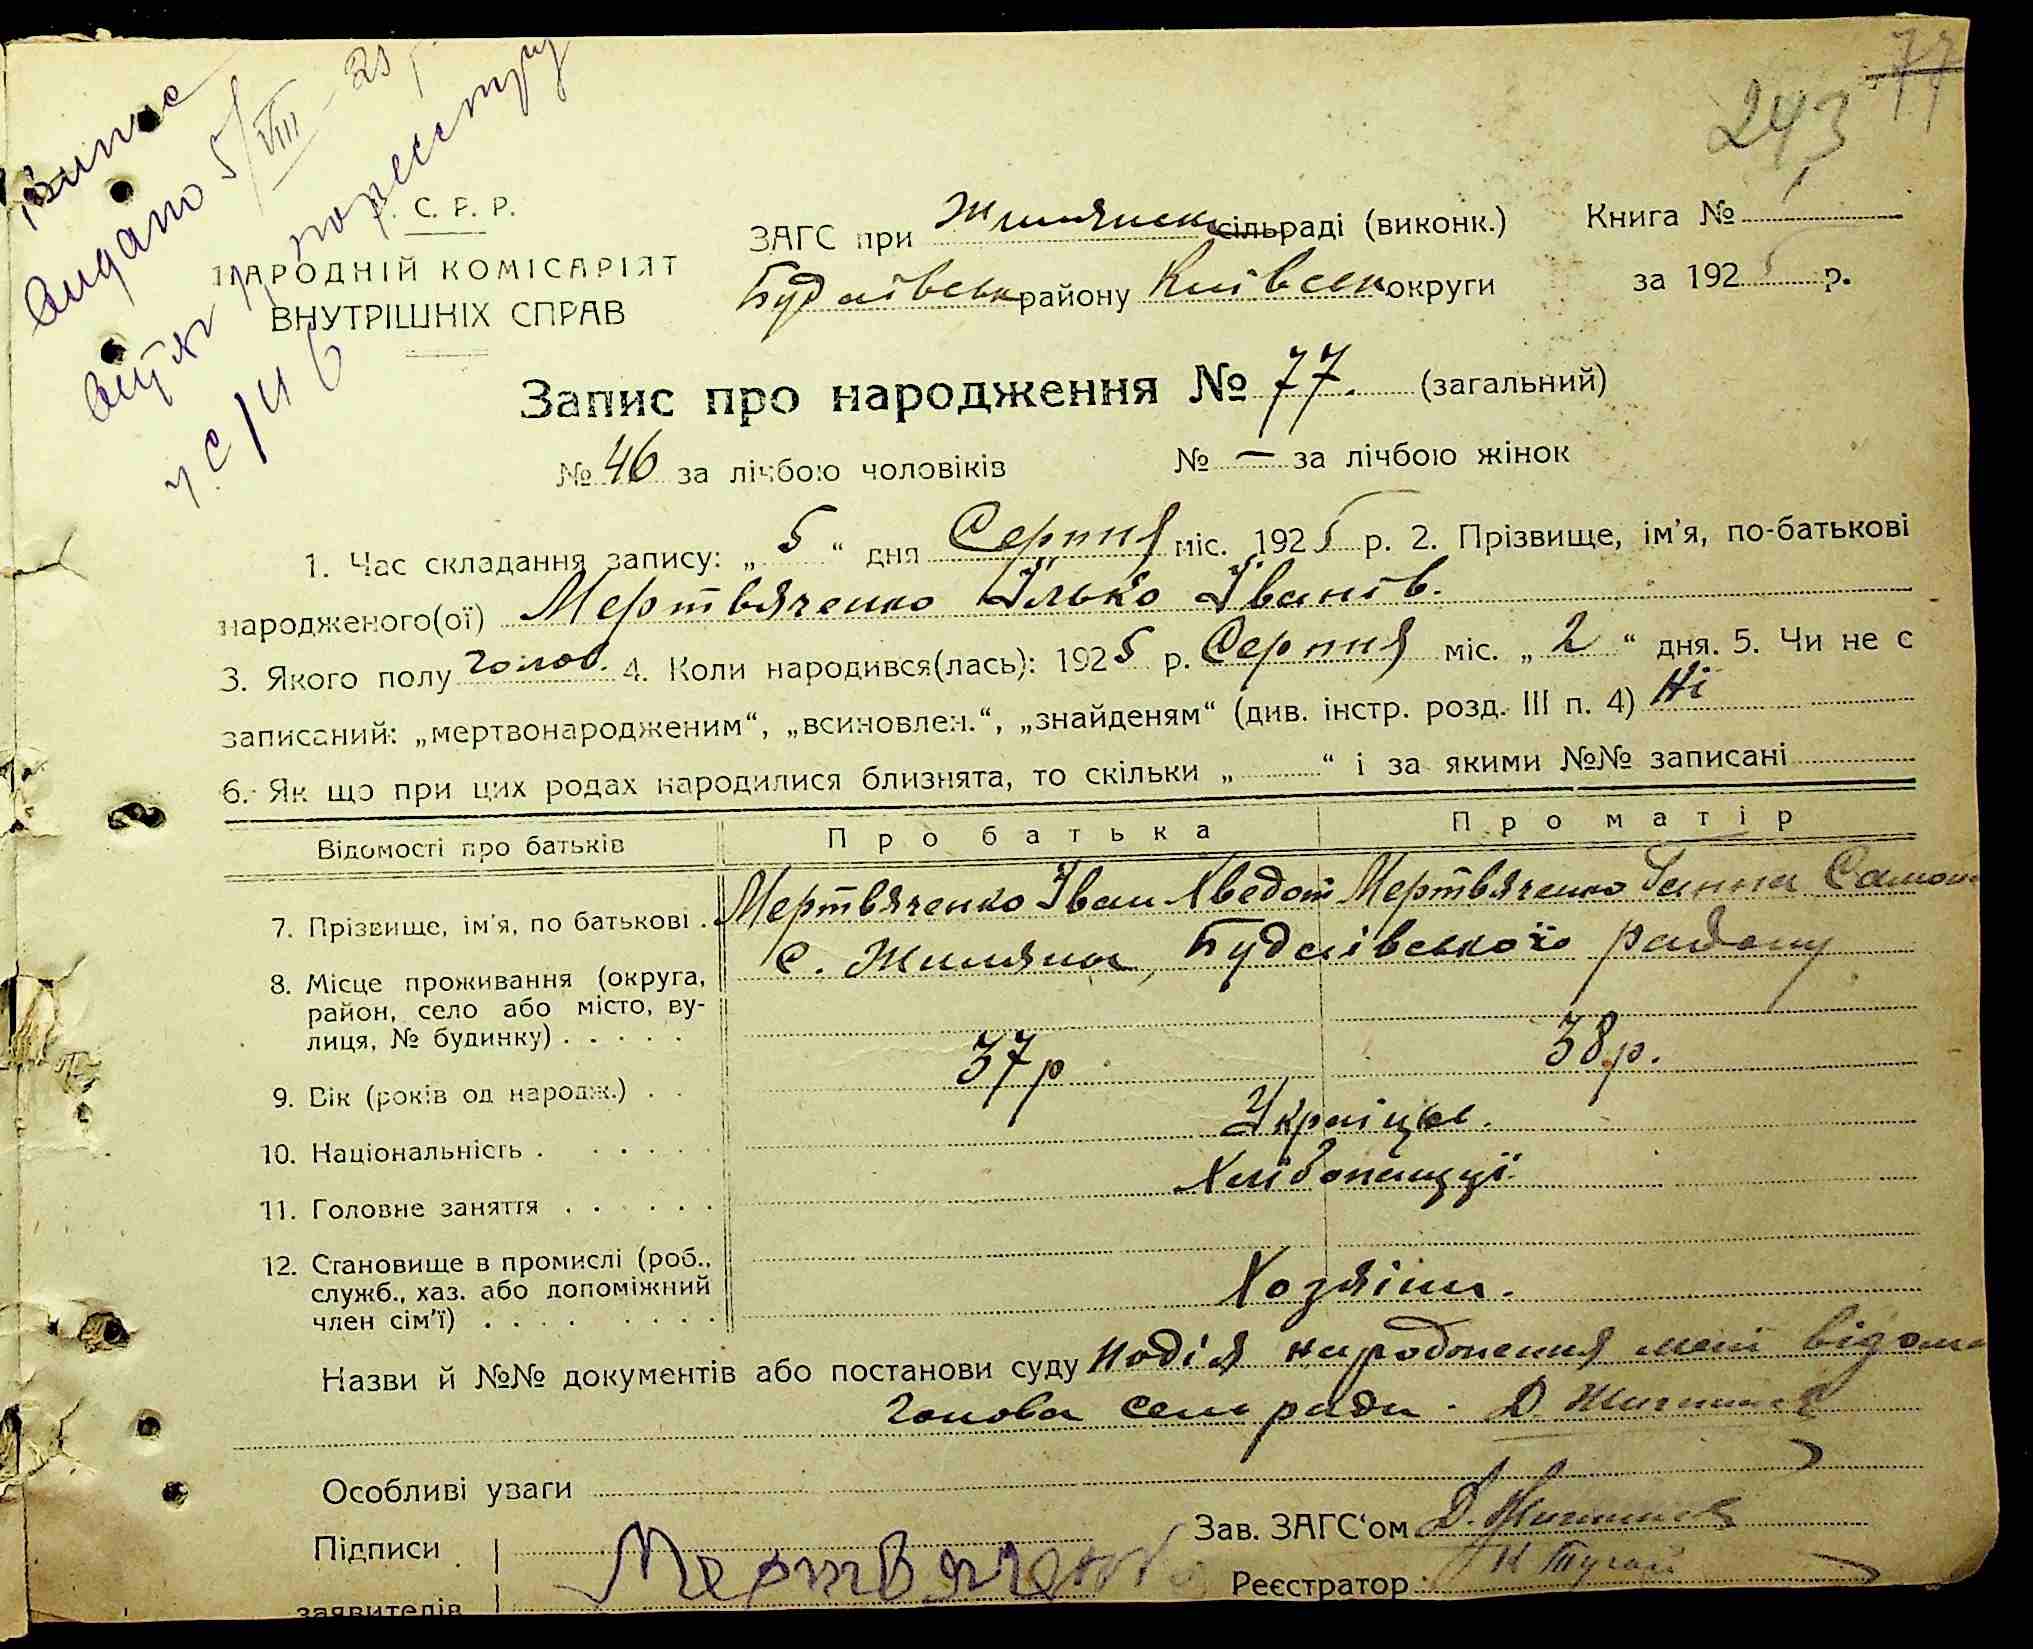 77
243
Випис
видано 5/VIII - 25 р
витяг по реестру
С. Р. Р.
НАРОДНІЙ КОМІСАРІЯТ
ВНУТРІШНІХ СПРАВ
ЗАГС при Жилянськ сільраді (виконк.) Книга №
Будаївськ району Київськ округи за 1925 р.
Запис про народження № 77. (загальний)
№ 46 за лічбою чоловіків № — за лічбою жінок
1. Час складання запису: „ 5 “ дня Серпня міс. 1925 р. 2. Прізвище, ім'я, по-батькові
народженого(ої) Мертвяченко Ілько Іванів.
3. Якого полу чолов. 4. Коли народився(лась): 1925 р. Серпня міс. „ 2 “ дня. 5. Чи не є
записаний: „мертвонародженим“, „всиновлен.“, „знайденям“ (див. інстр. розд. III п. 4) Ні
6. Як що при цих родах народилися близнята, то скільки „ “ і за якими №№ записані
Відомості про батьків Про батька Про матір
7. Прізвище, ім'я, по батькові . Мертвяченко Іван Яведот Мертвяченко Ганна Самой
8. Місце проживання (округа, с. Жиляни, Будаївського району
район, село або місто, ву-
лиця, № будинку) . . . . .
9. Вік (років од народж.) . . 37р 38р.
10. Національність . . . . . . Українці.
11. Головне заняття . . . . . . Хлібопашці.
12. Становище в промислі (роб.,
служб., хаз. або допоміжний
член сім'ї) . . . . . . . . . Хозяіни.
Назви й №№ документів або постанови суду Подія народження мені відома
Голова сельради. Д.
Особливі уваги
Підписи Зав. ЗАГС‘ом Д.
Мертвяченко
заявителів Реєстратор К Тугай